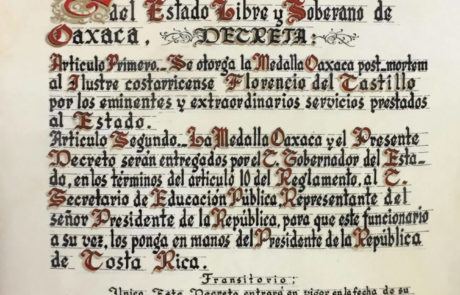 del Estado Libre y Soberano de
Oaxaca, DECRETA:
Articulo Primero._ Se otorga la Medalla Oaxaca post-mortem
al Ilustre costarricense Florencio del Castillo
por los eminentes y extraordinarios servicios prestados
al Estado.
Articulo Segundo._ La Medalla Oaxaca y el Presente
Decreto serán entregados por el C. Gobernador del Esta-
do, en los términos del articulo 10 del Reglamento, al C.
Secretario de Educación Pública, Representante del
señor Presidente de la República, para que este funcionario
a su vez, los ponga en manos del Presidente de la República
de Costa Rica.
Transitorio:
Unico. Este Decreto entrará en vigor en la fecha de su